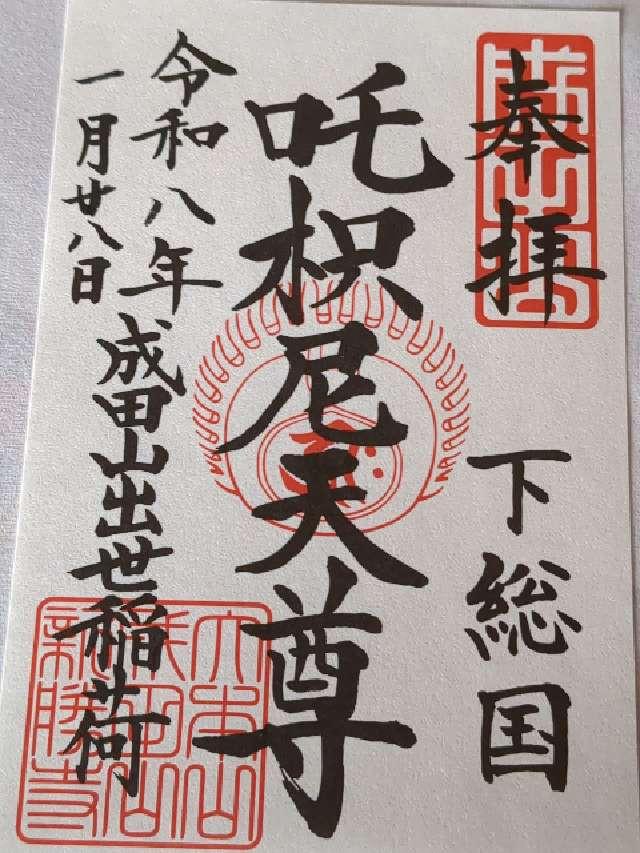 奉拝
下総国
吒枳尼天尊
令和八年
一月廿八日
成田山出世稲荷
成田山
大本山
成田山
新勝寺